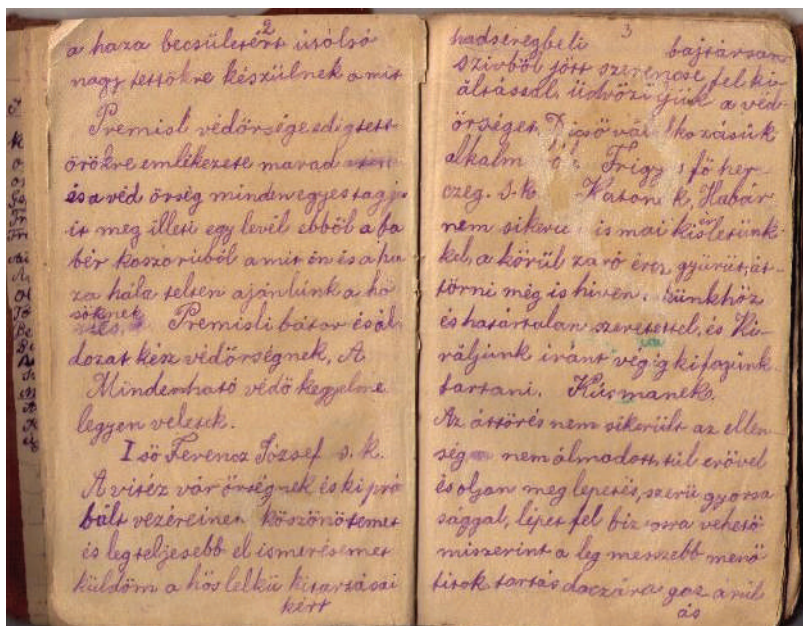 2
a haza becsületért utólsó
nagy tettökre készülnek a mit
Premisl védőrsége edig tett
örökre emlékezete marad
és a véd örség minden egyes tagja
it meg illeti egy levél ebböl a ba
bér koszorúból a mit én és a ha
za hála telten ajánlunk a hö
söknek
Premisli bátor és ál
dozat kész védőrségnek. A
Mindenható védö kegyelme
legyen veletek.
I sö Ferencz József s. k.
A vitéz vár örségnek és ki pró
bált vezéreinek köszönötemet
és leg teljesebb el ismerésemet
küldöm a hös lelkü kitartásai
kért
3
hadseregbeli bajtársan
szivböl jött szerencse fel ki
áltással, üdvözöljük a véd
örséget.
alkalm Frigy s fö her-
czeg. s. k. Katon k, Habár
nem siker is mai kis
kel, a körül záró ércz gyürüt, át-
törni még is hiven, künkhöz
és határtalan szeretettel, és Ki-
rályunk iránt végig kifogunk
tartani. Kúsmanek.
Az áttörés nem sikerült az ellen
ség nem álmodott, túl erövel
és oljan meg lepetés, szerü gyorsa
sággal, lépet fel biz osra vehetö
miszerint a leg messzebb menö
titok tartás daczára gaz árúl
ás